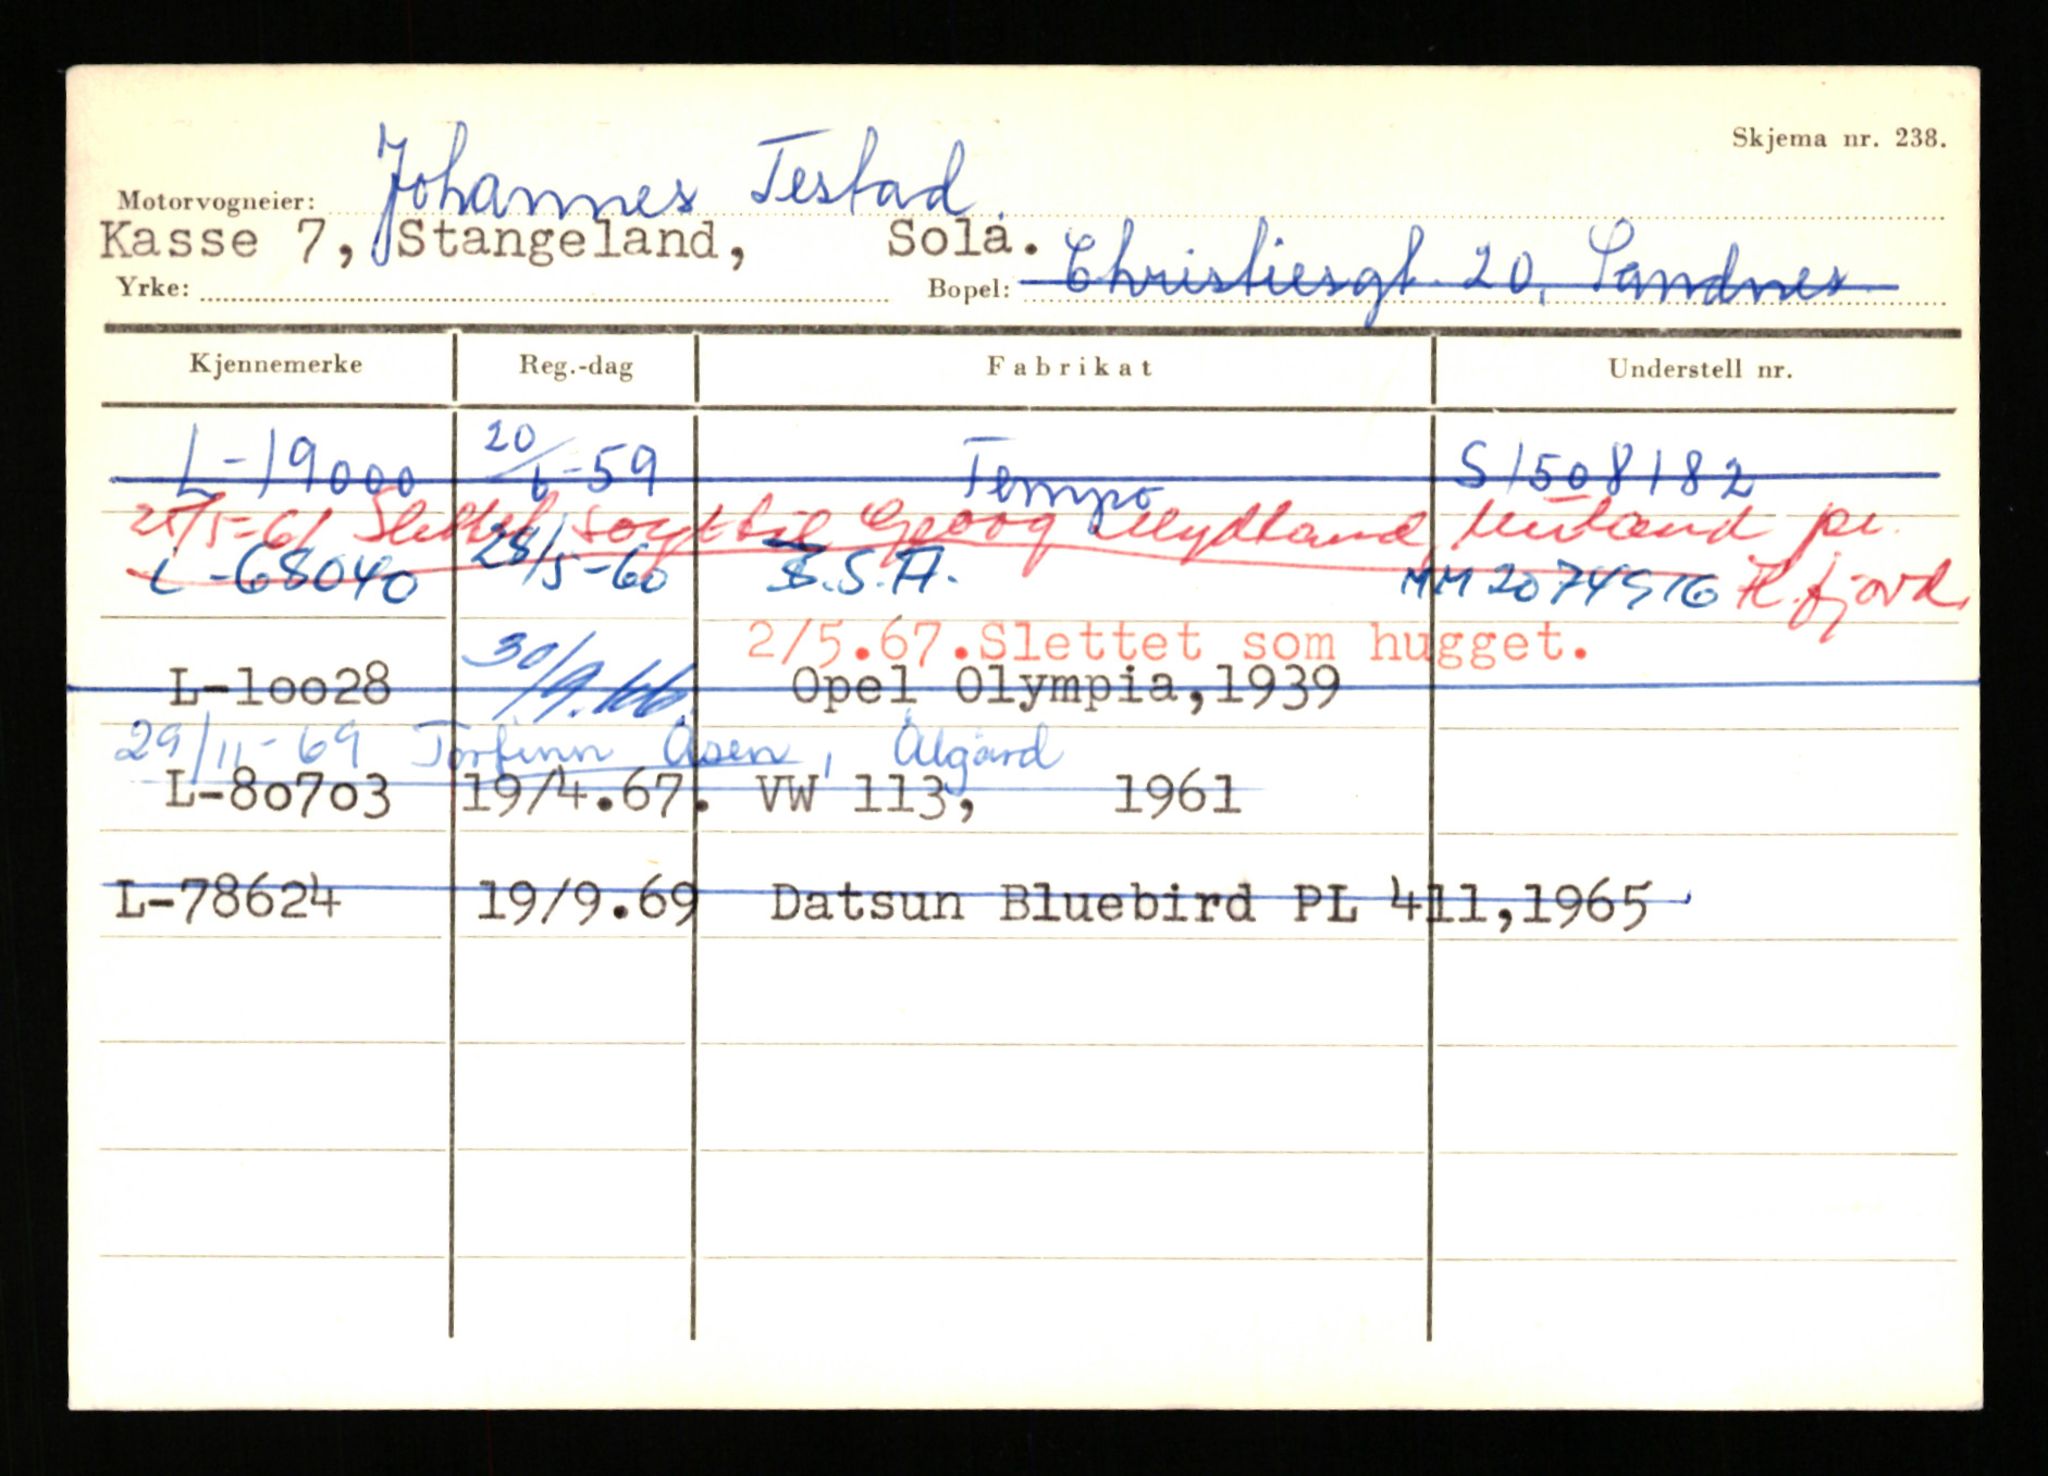 Skjema nr. 238.
Motorvogneier: Johannes Testad
Kasse 7, Stangeland, Sola.
Yrke: Bopel: Christiesgt. 20, Sandnes
Kjennemerke Reg.-dag Fabrikat Understell nr.
L-19000 20/6-59 Tempo S1508182
25/5-61 Slettet solgt til Georg Mydland, pr.
L-68040 28/5-60 B.S.A. H.fjord.
2/5.67.Slettet som hugget.
L-10028 30/9.66. Opel Olympia,1939
29/11-69 Torfinn Åsen, Ålgård
L-80703 19/4.67. VW 113, 1961
L-78624 19/9.69 Datsun Bluebird PL 411,1965